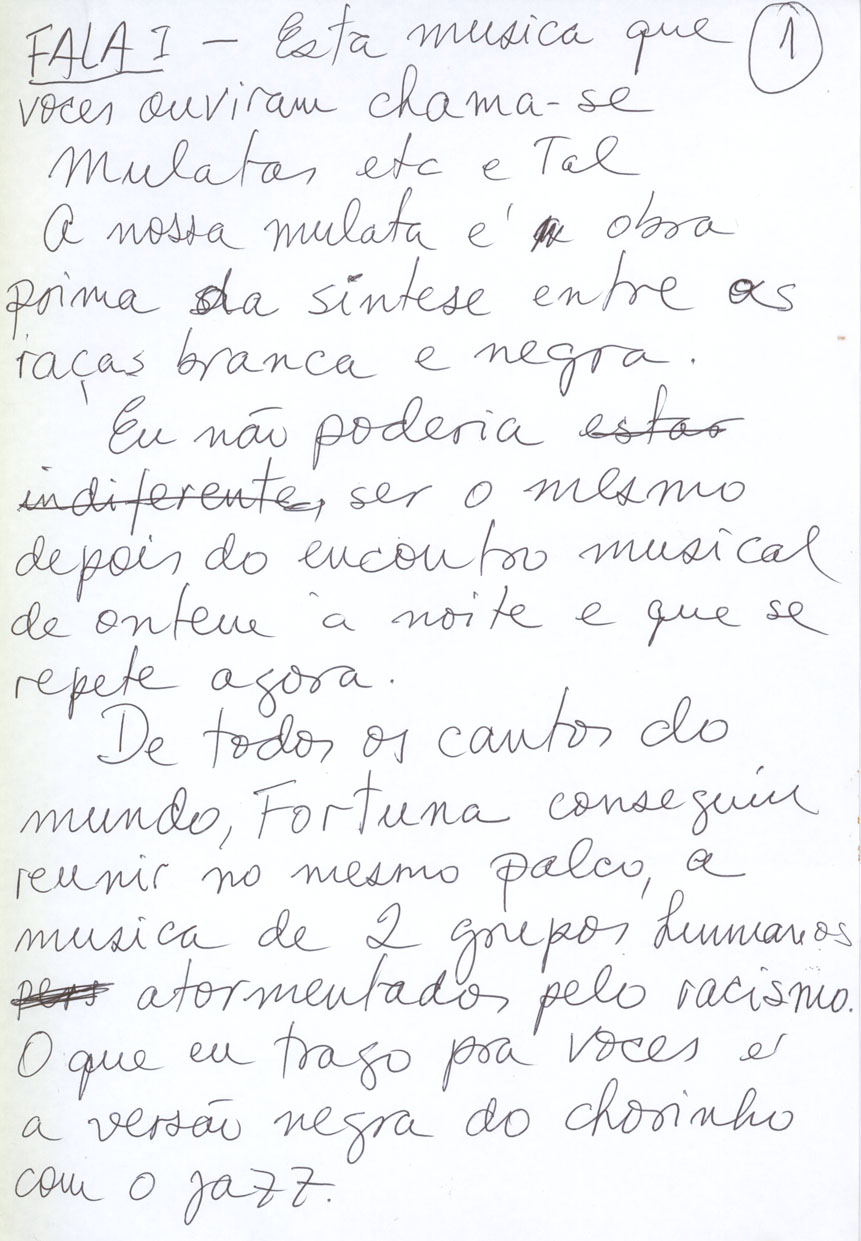 FALA I — Esta musica que ①
voces ouviram chama-se
Mulatas etc e Tal
A nossa mulata e' a obra
prima da síntese entre as
raças branca e negra.
Eu não poderia estar
indiferente, ser o mesmo
depois do encontro musical
de ontem à noite e que se
repete agora.
De todos os cantos do
mundo, Fortuna conseguiu
reunir no mesmo palco, a
musica de 2 grupos humanos
pers atormentados pelo racismo.
O que eu trago pra voces e'
a versão negra do chorinho
com o jazz.